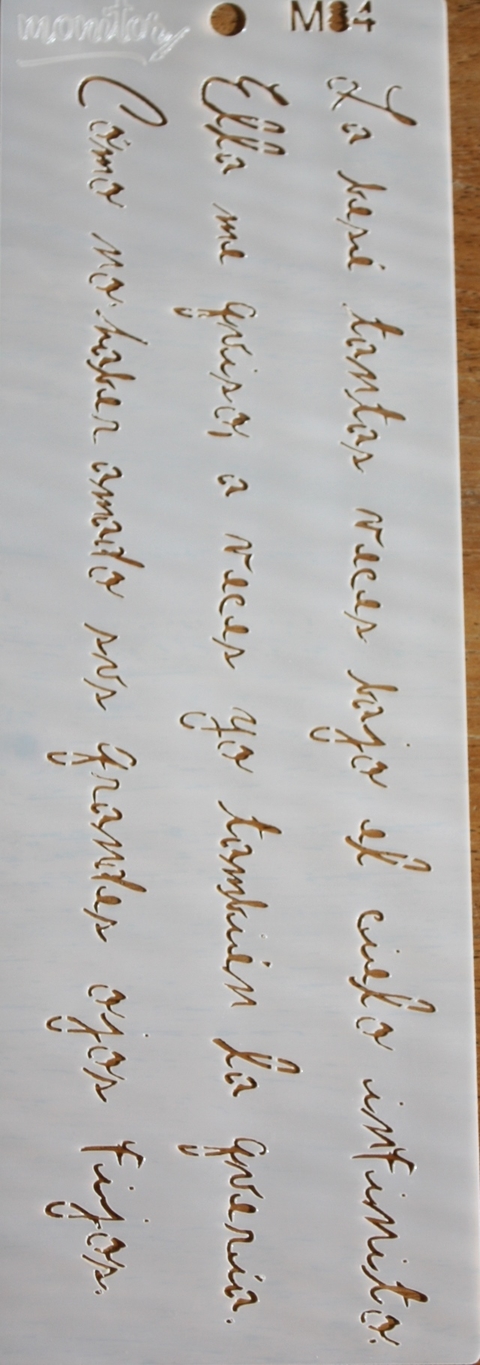 monitor
M 4
La besé tantas veces bajo el cielo infinito.
Ella me quiso, a veces yo también la quería.
Cómo no haber amado sus grandes ojos fijos.